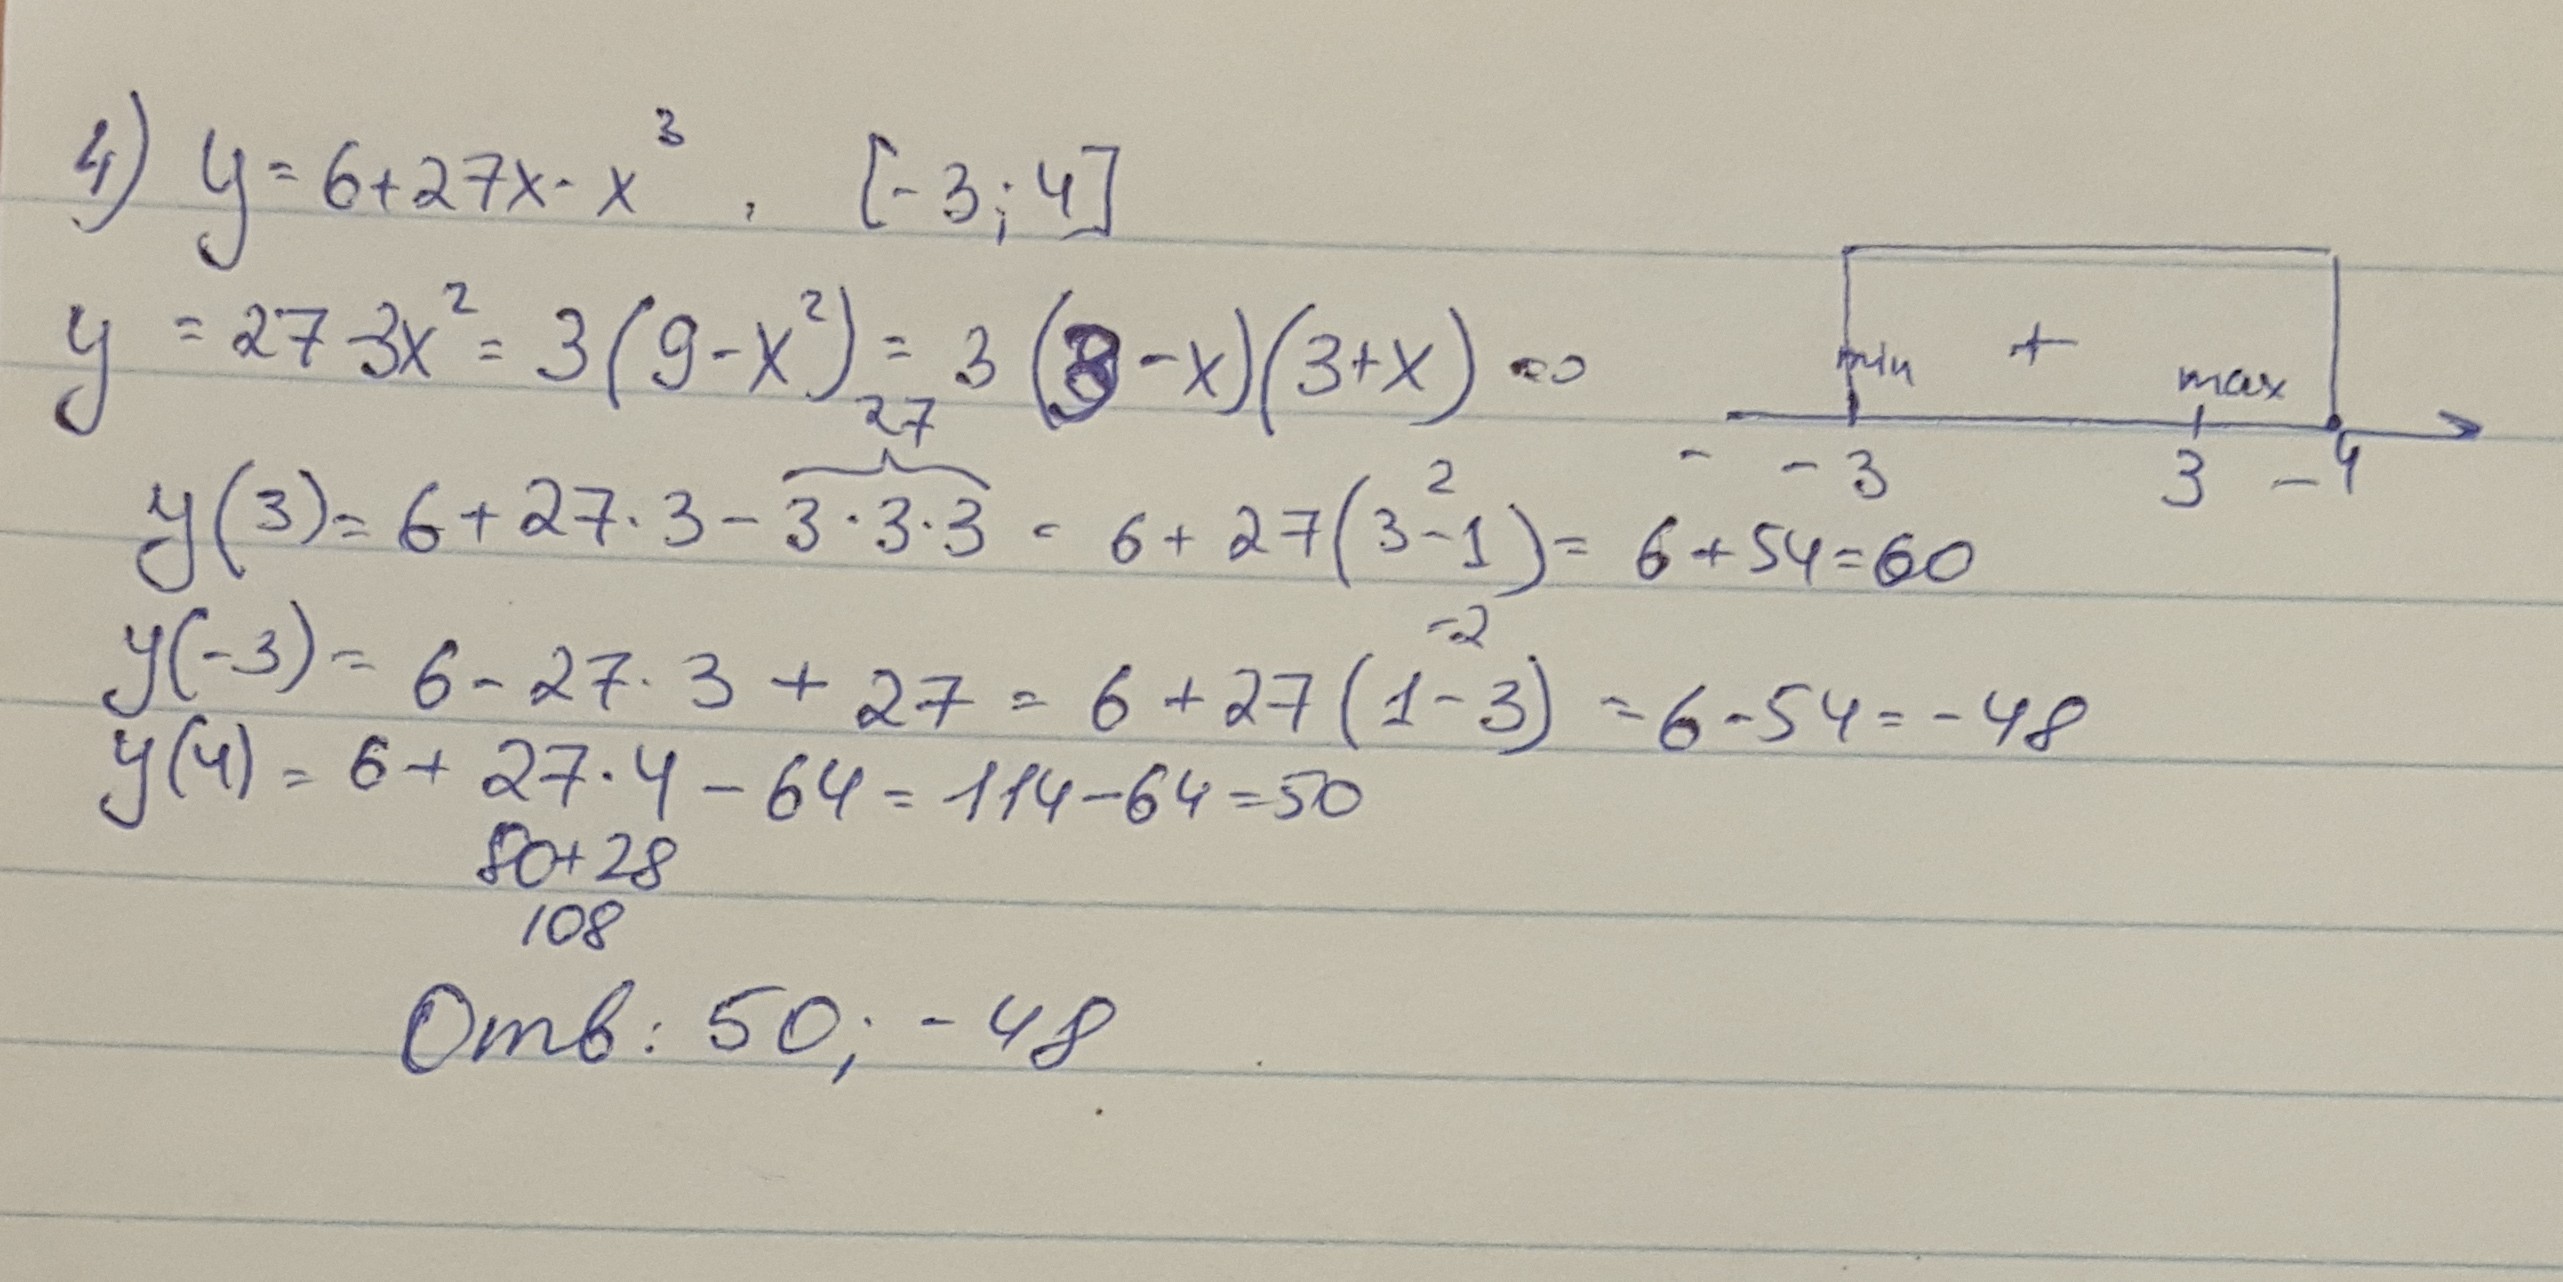 4) y = 6+27x-x³, [-3; 4]
y = 27-3x² = 3(9-x²) = 3(3-x)(3+x) = 0
min + max
- -3 3 - 4
27
y(3) = 6+27·3-3·3·3 = 6+27(3-1) = 6+54=60
2
-2
y(-3) = 6-27·3+27 = 6+27(1-3) = 6-54=-48
y(4) = 6+27·4-64=114-64=50
80+28
108
Отв: 50; -48